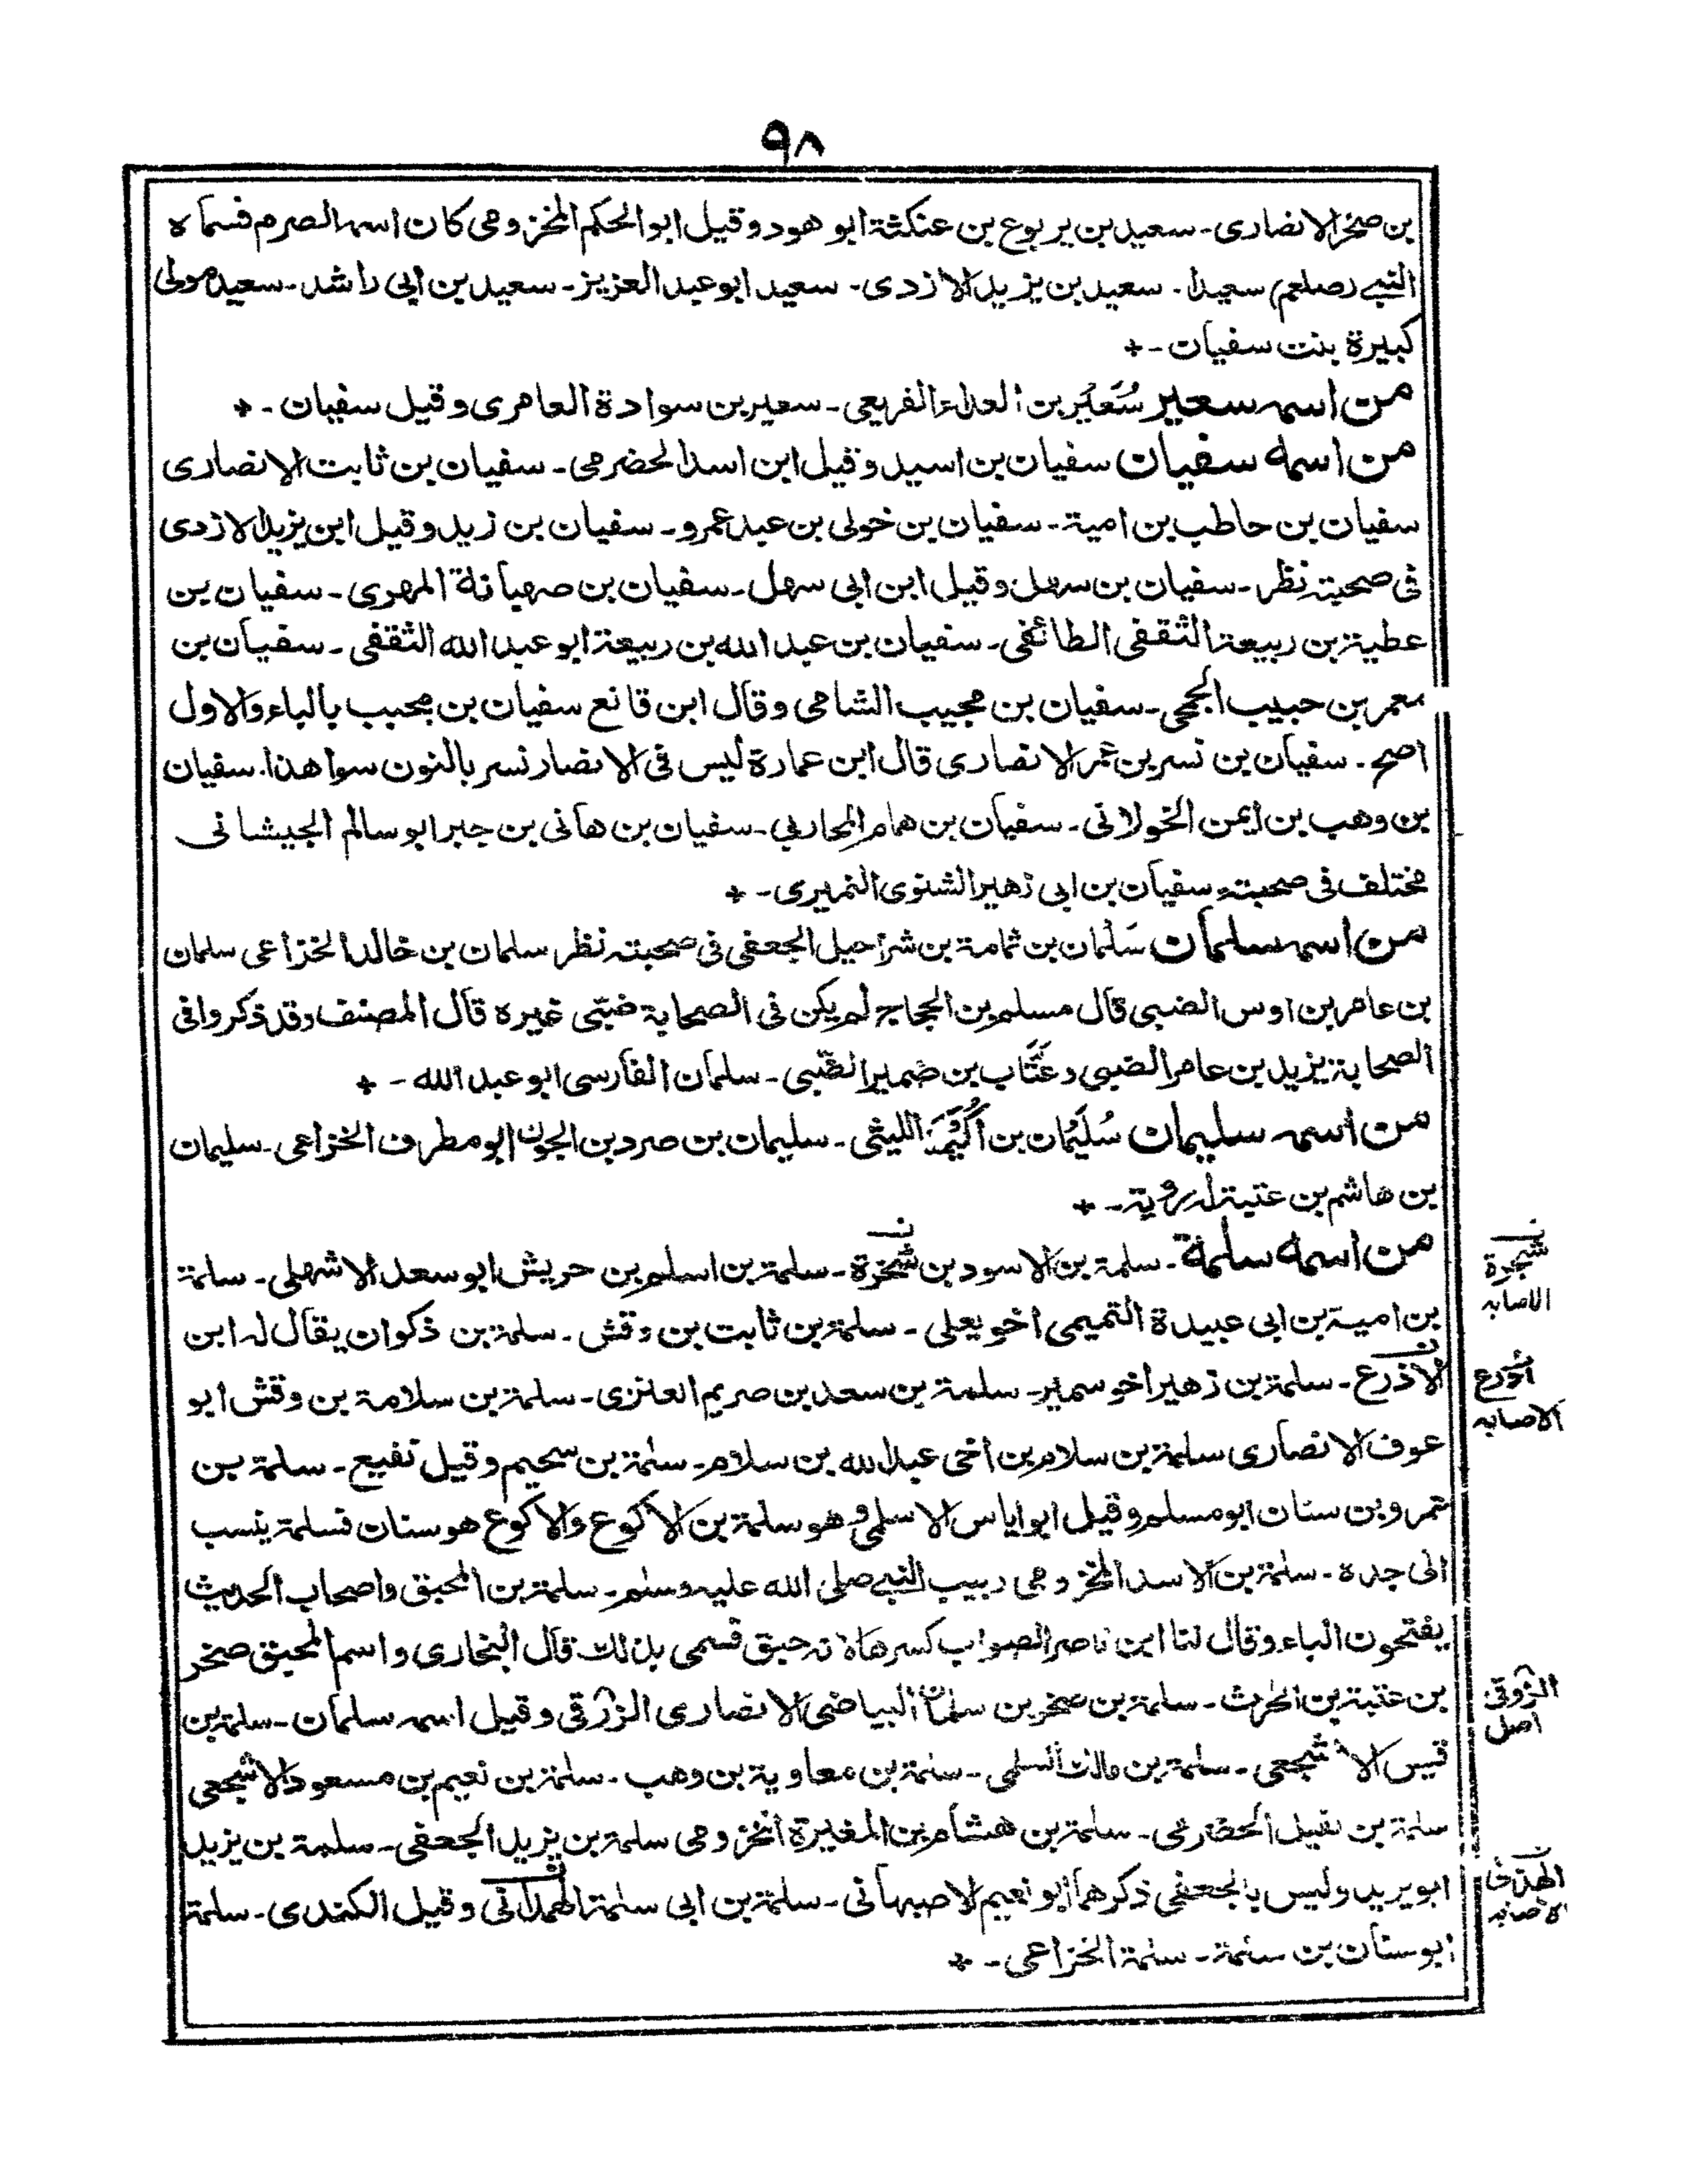 ٩٨
بن صخر الانصارى ـ سعيد بن يربوع بن عنكثة ابو هود وقيل ابو الحكم المخزومى كان اسمه الصرم فسماه
النبى (صلعم) سعيدا ـ سعيد بن يزيد الازدى ـ سعيد ابو عبد العزيز ـ سعيد بن ابى راشد ـ سعيد مولى
كبيرة بنت سفيان ـ *
من اسمه سعير سُعَير بن العداء الفريعى ـ سعير بن سوادة العامرى وقيل سفيان ـ *
من اسمه سفيان سفيان بن اسيد وقيل ابن اسد الحضرمى ـ سفيان بن ثابت الانصارى
سفيان بن حاطب بن امية ـ سفيان بن خولى بن عبد عمرو ـ سفيان بن زيد وقيل ابن يزيد الازدى
فى صحبته نظر ـ سفيان بن سهل وقيل ابن ابى سهل ـ سفيان بن صهبانة المهرى ـ سفيان بن
عطية بن ربيعة الثقفى الطائفى ـ سفيان بن عبد الله بن ربيعة ابو عبد الله الثقفى ـ سفيان بن
معمر بن حبيب الجمحى ـ سفيان بن مجيب الشامى وقال ابن قانع سفيان بن محبب بالباء والاول
اصح ـ سفيان بن نسر بن عمر الانصارى قال ابن عمارة ليس فى الانصار نسر بالنون سوا هذا ـ سفيان
بن وهب بن ايمن الخولانى ـ سفيان بن همام المحاربى ـ سفيان بن هانى بن جبر ابو سالم الجيشانى
مختلف فى صحبته سفيان بن ابى زهير الشنوى النميرى ـ *
من اسمه سلمان سَلمان بن ثمامة بن شراحيل الجعفى فى صحبته نظر سلمان بن خالد الخزاعى سلمان
بن عامر بن اوس الضبى قال مسلم بن الحجاج لم يكن فى الصحابة ضبّى غيره قال المصنف وقد ذكروا فى
الصحابة يزيد بن عامر الضبى وعتَّاب بن ضمير الضّبى ـ سلمان الفارسى ابو عبد الله ـ *
من اسمه سليمان سُلَيمان بن أُكَيمَة الليثى ـ سليمان بن صرد بن الجون ابو مطرف الخزاعى ـ سليمان
بن هاشم بن عتبة له روية ـ *
من اسمه سلمة ـ سلمة بن الاسود بن شخرة ـ سلمة بن اسلم بن حريش ابو سعد الاشهلى ـ سلمة
بن امية بن ابى عبيدة التميمى اخو يعلى ـ سلمة بن ثابت بن وقش ـ سلمة بن ذكوان يقال له ابن
الاذرع ـ سلمة بن زهير اخو سمير ـ سلمة بن سعد بن صريم العنزى ـ سلمة بن سلامة بن وقش ابو
عوف الانصارى سلمة بن سلام بن أخى عبد الله بن سلام ـ سلمة بن سحيم وقيل نفيع ـ سلمة بن
عمرو بن سنان ابو مسلم وقيل ابو اياس الاسلمى وهو سلمة بن الاكوع والاكوع هو سنان فسلمة ينسب
الى جده ـ سلمة بن الاسد المخزومى ربيب النبى صلى الله عليه وسلم ـ سلمة بن المحبق واصحاب الحديث
يفتحون الباء وقال لنا ابن ناصر الصواب كسرها لانه حبق فسمى بذلك قال البخارى واسم المحبق صخر
بن عتبة بن الحرث ـ سلمة بن صخر بن سلمان البياضى الانصارى الزرقى وقيل اسمه سلمان ـ سلمة بن
قيس الاشجعى ـ سلمة بن مالك السلمى ـ سلمة بن معاوية بن وهب ـ سلمة بن نعيم بن مسعود الاشجعى
سلمة بن نفيل الحضرمى ـ سلمة بن هشام بن المغيرة المخزومى سلمة بن يزيد الجعفى ـ سلمة بن يزيد
ابو يريد وليس بالجعفى ذكرهما ابو نعيم الاصبهانى ـ سلمة بن ابى سلمة الهمدانى وقيل الكندى ـ سلمة
ابو سنان بن سلمة ـ سلمة الخزاعى ـ *
شجرة
الاصابه
الاصابه
الزوقى
اصل